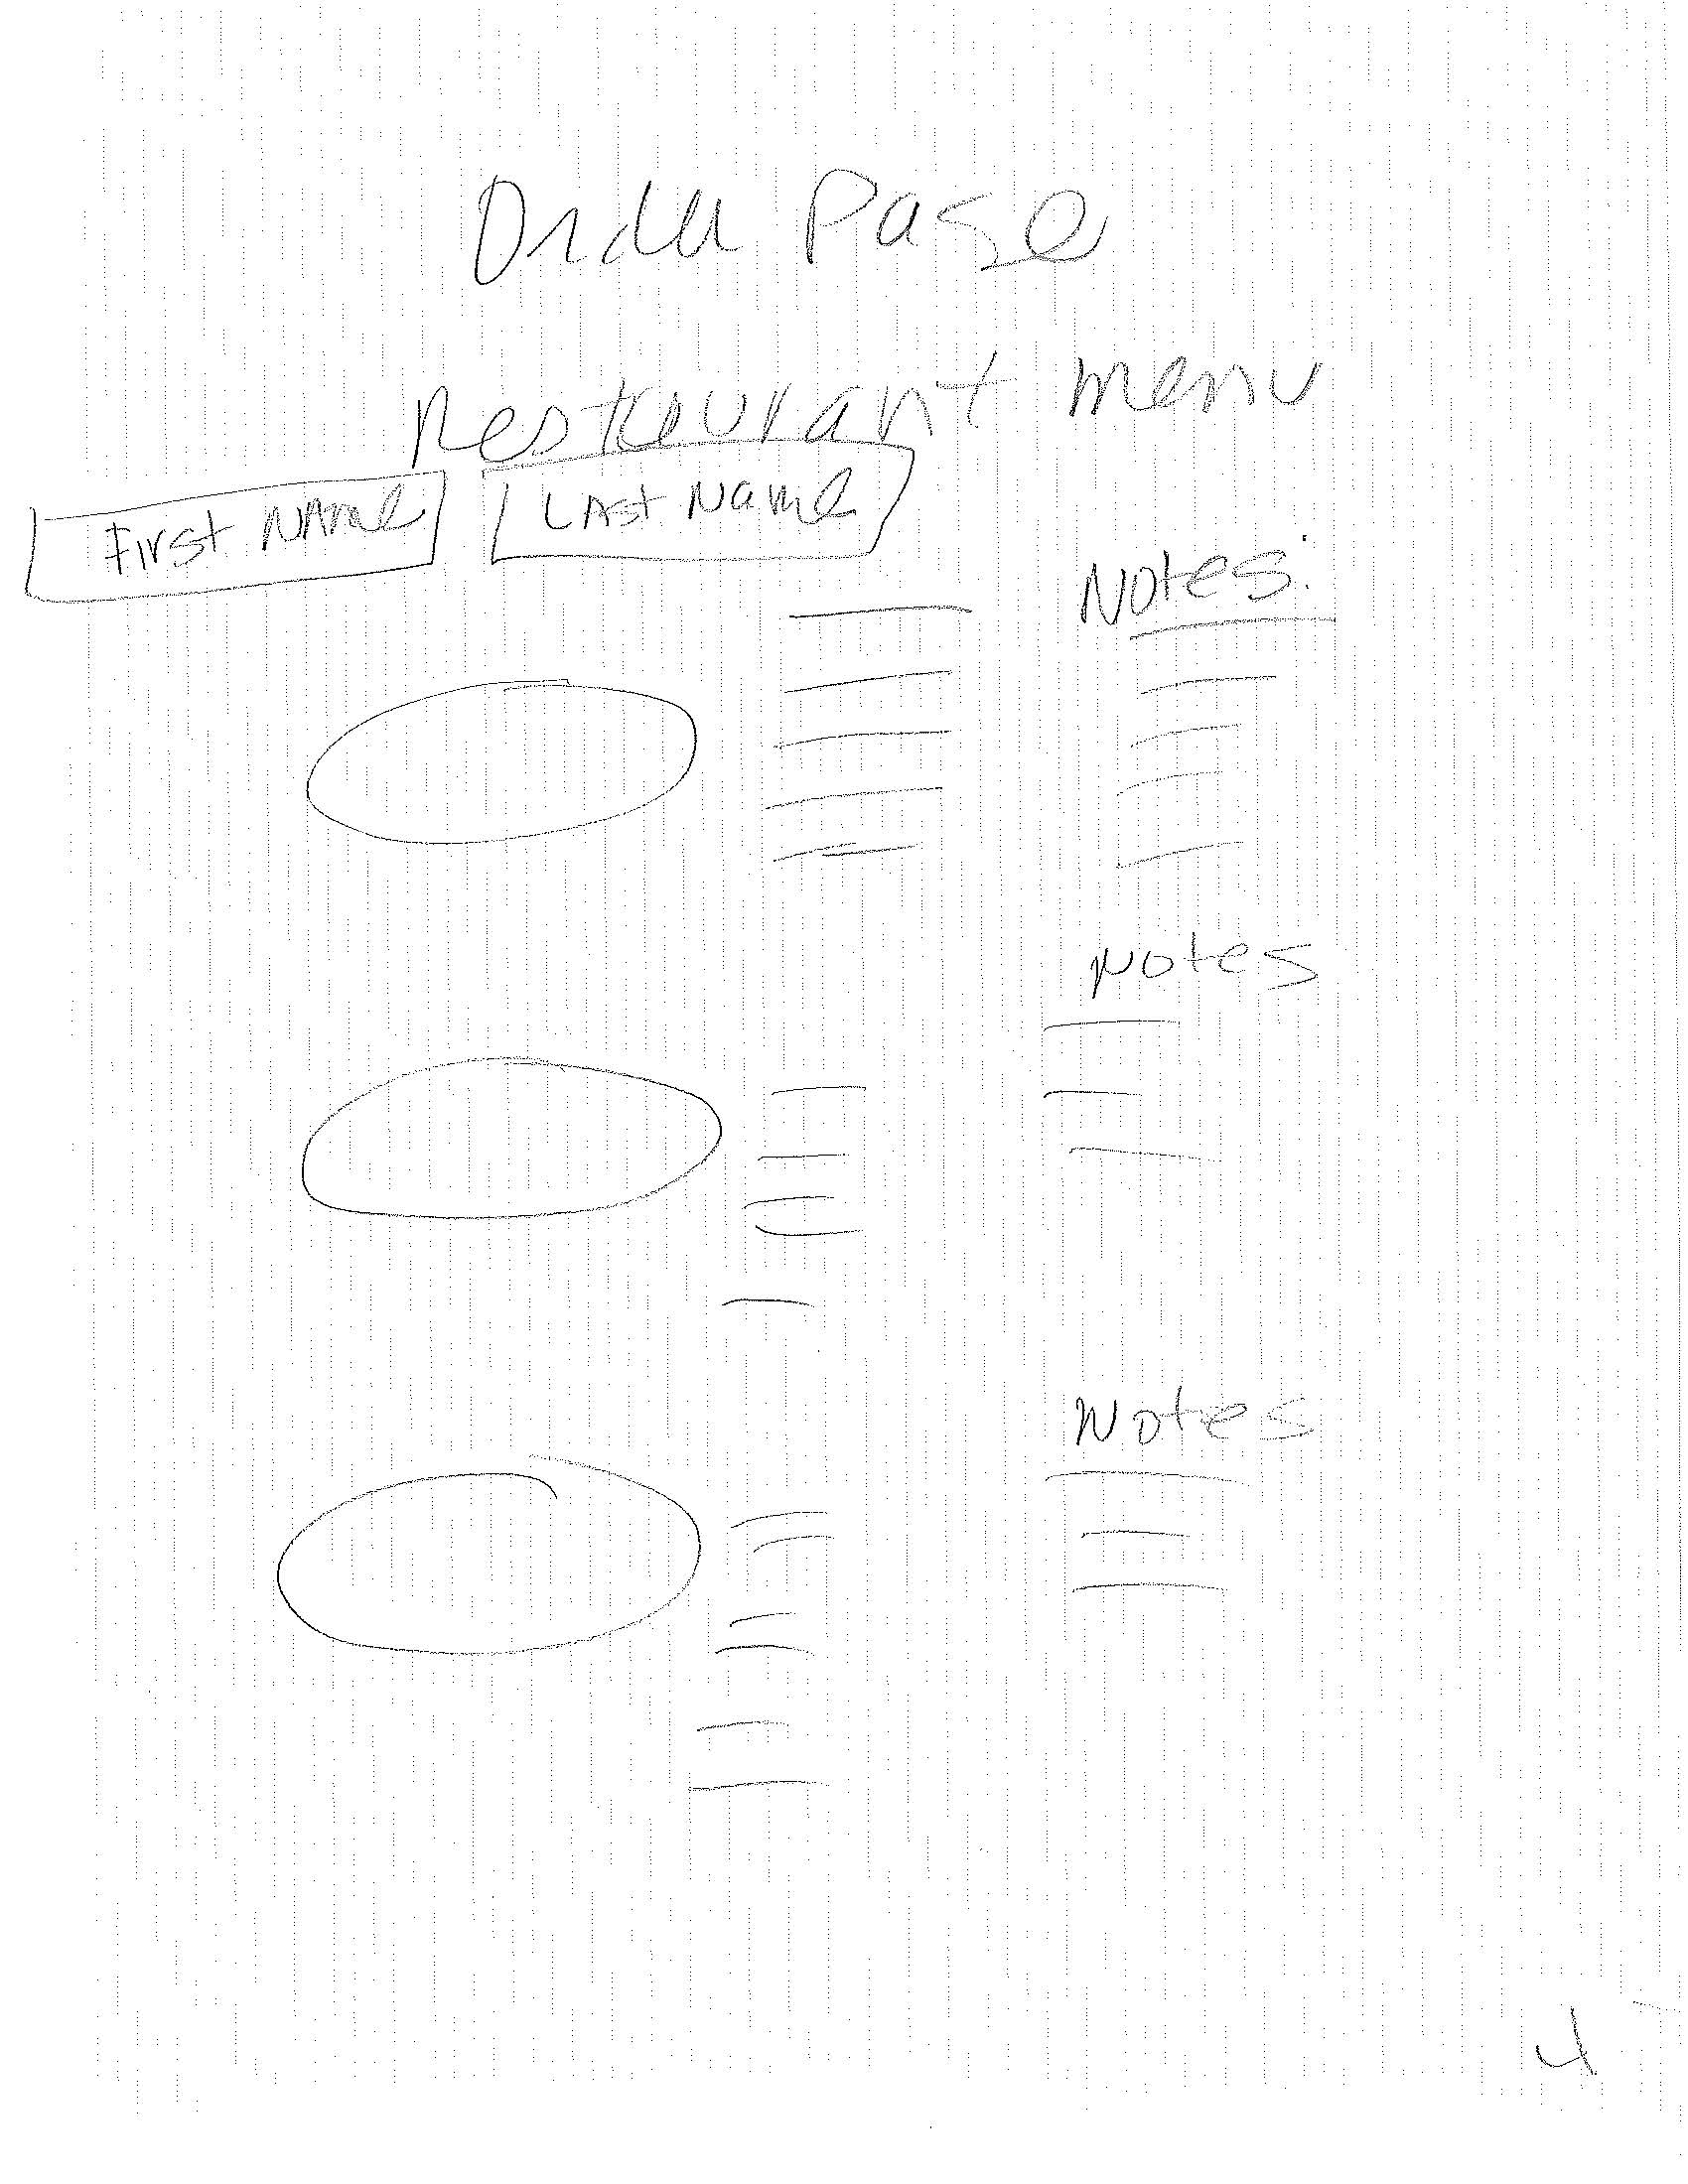 Order Page
Restaurant menu
First Name
Last Name
Notes:
Notes
Notes
4